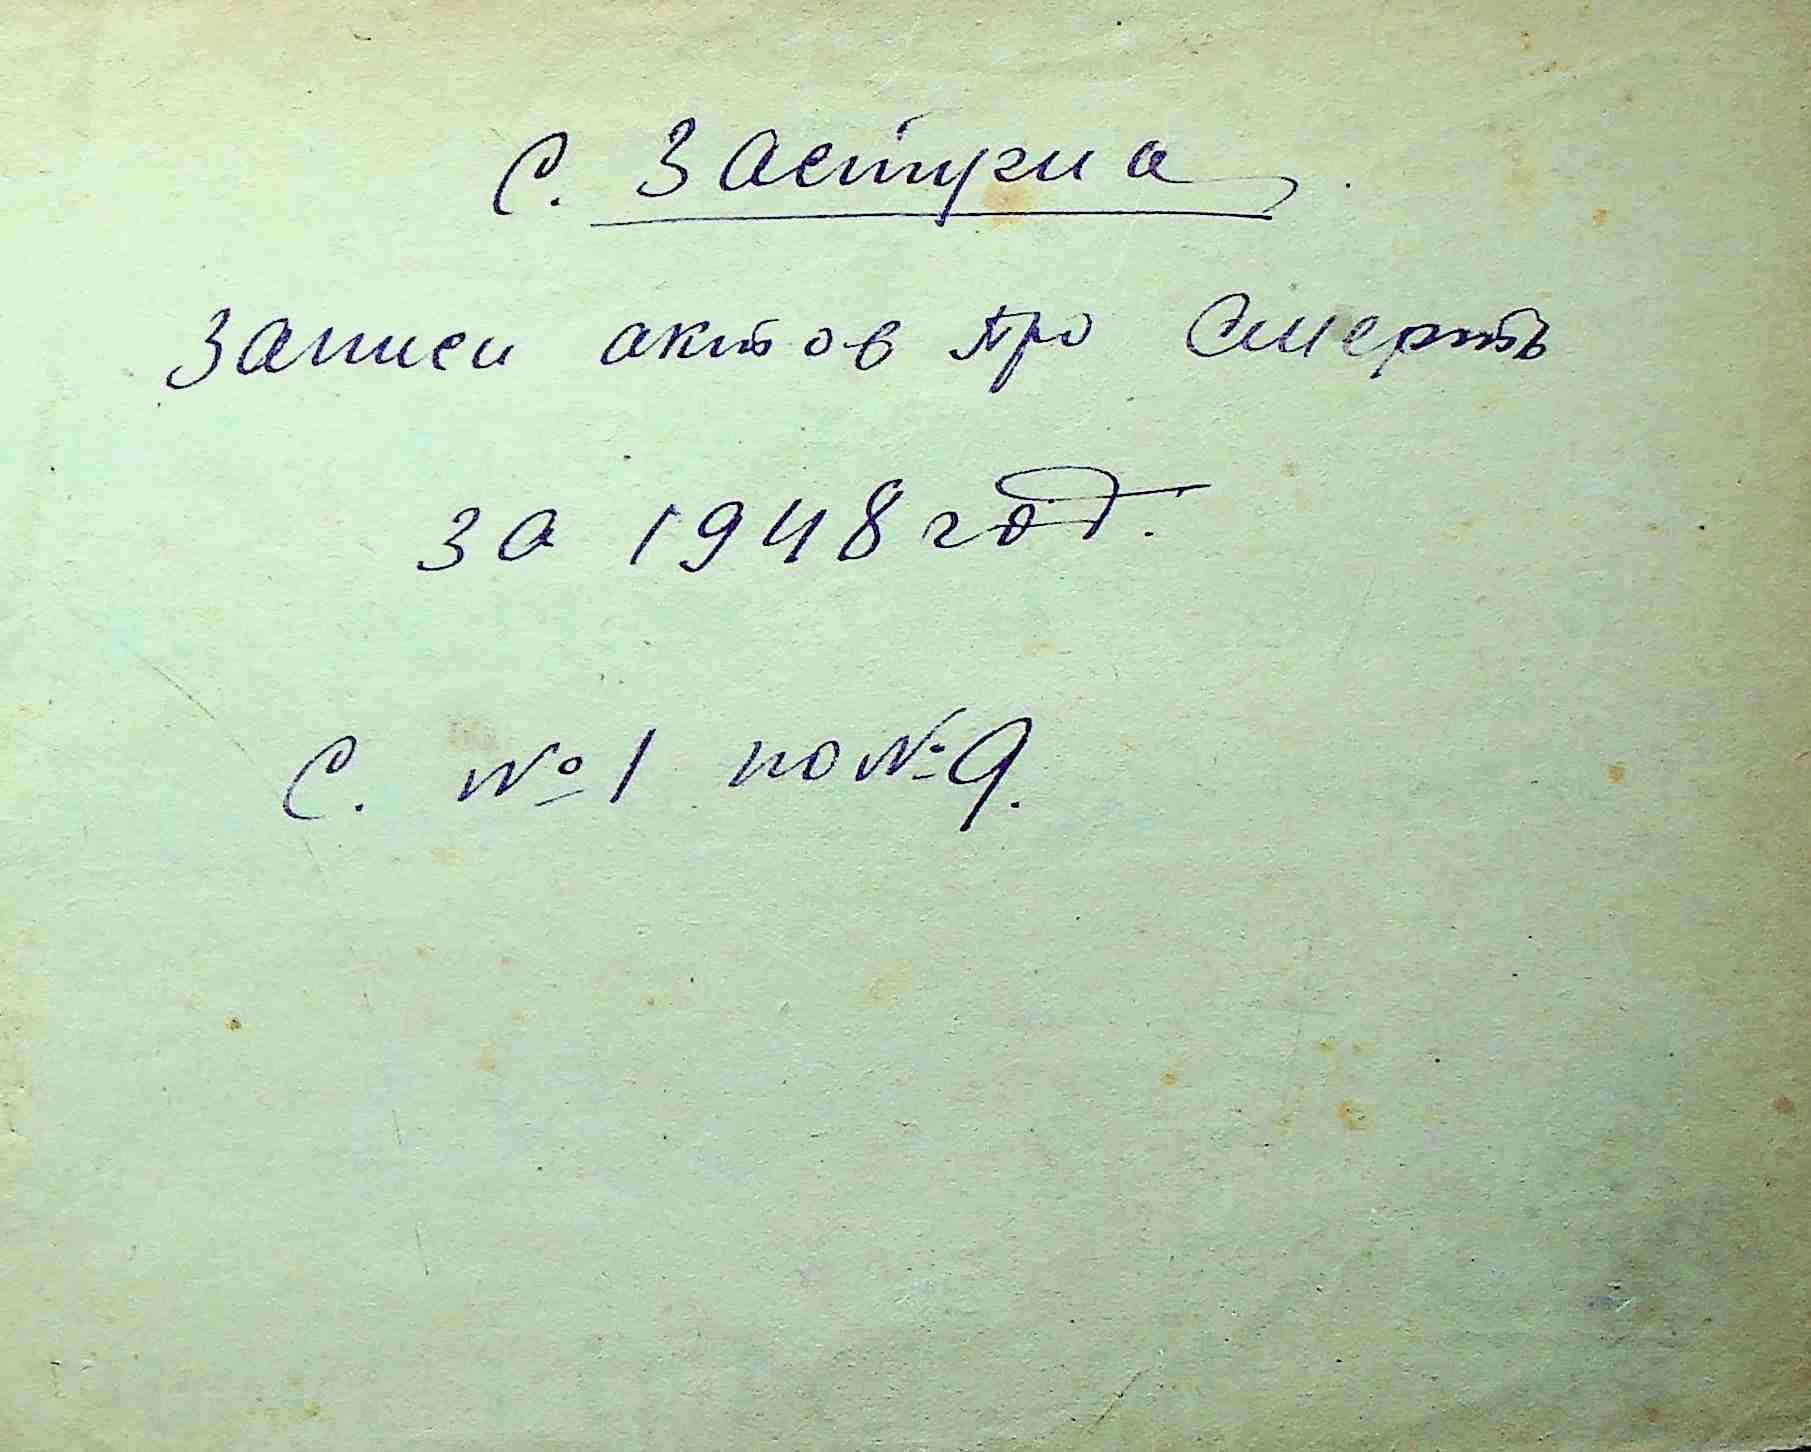 с. Застугна
Записи актов про смерть
за 1948 год.
С. №1 по №9.